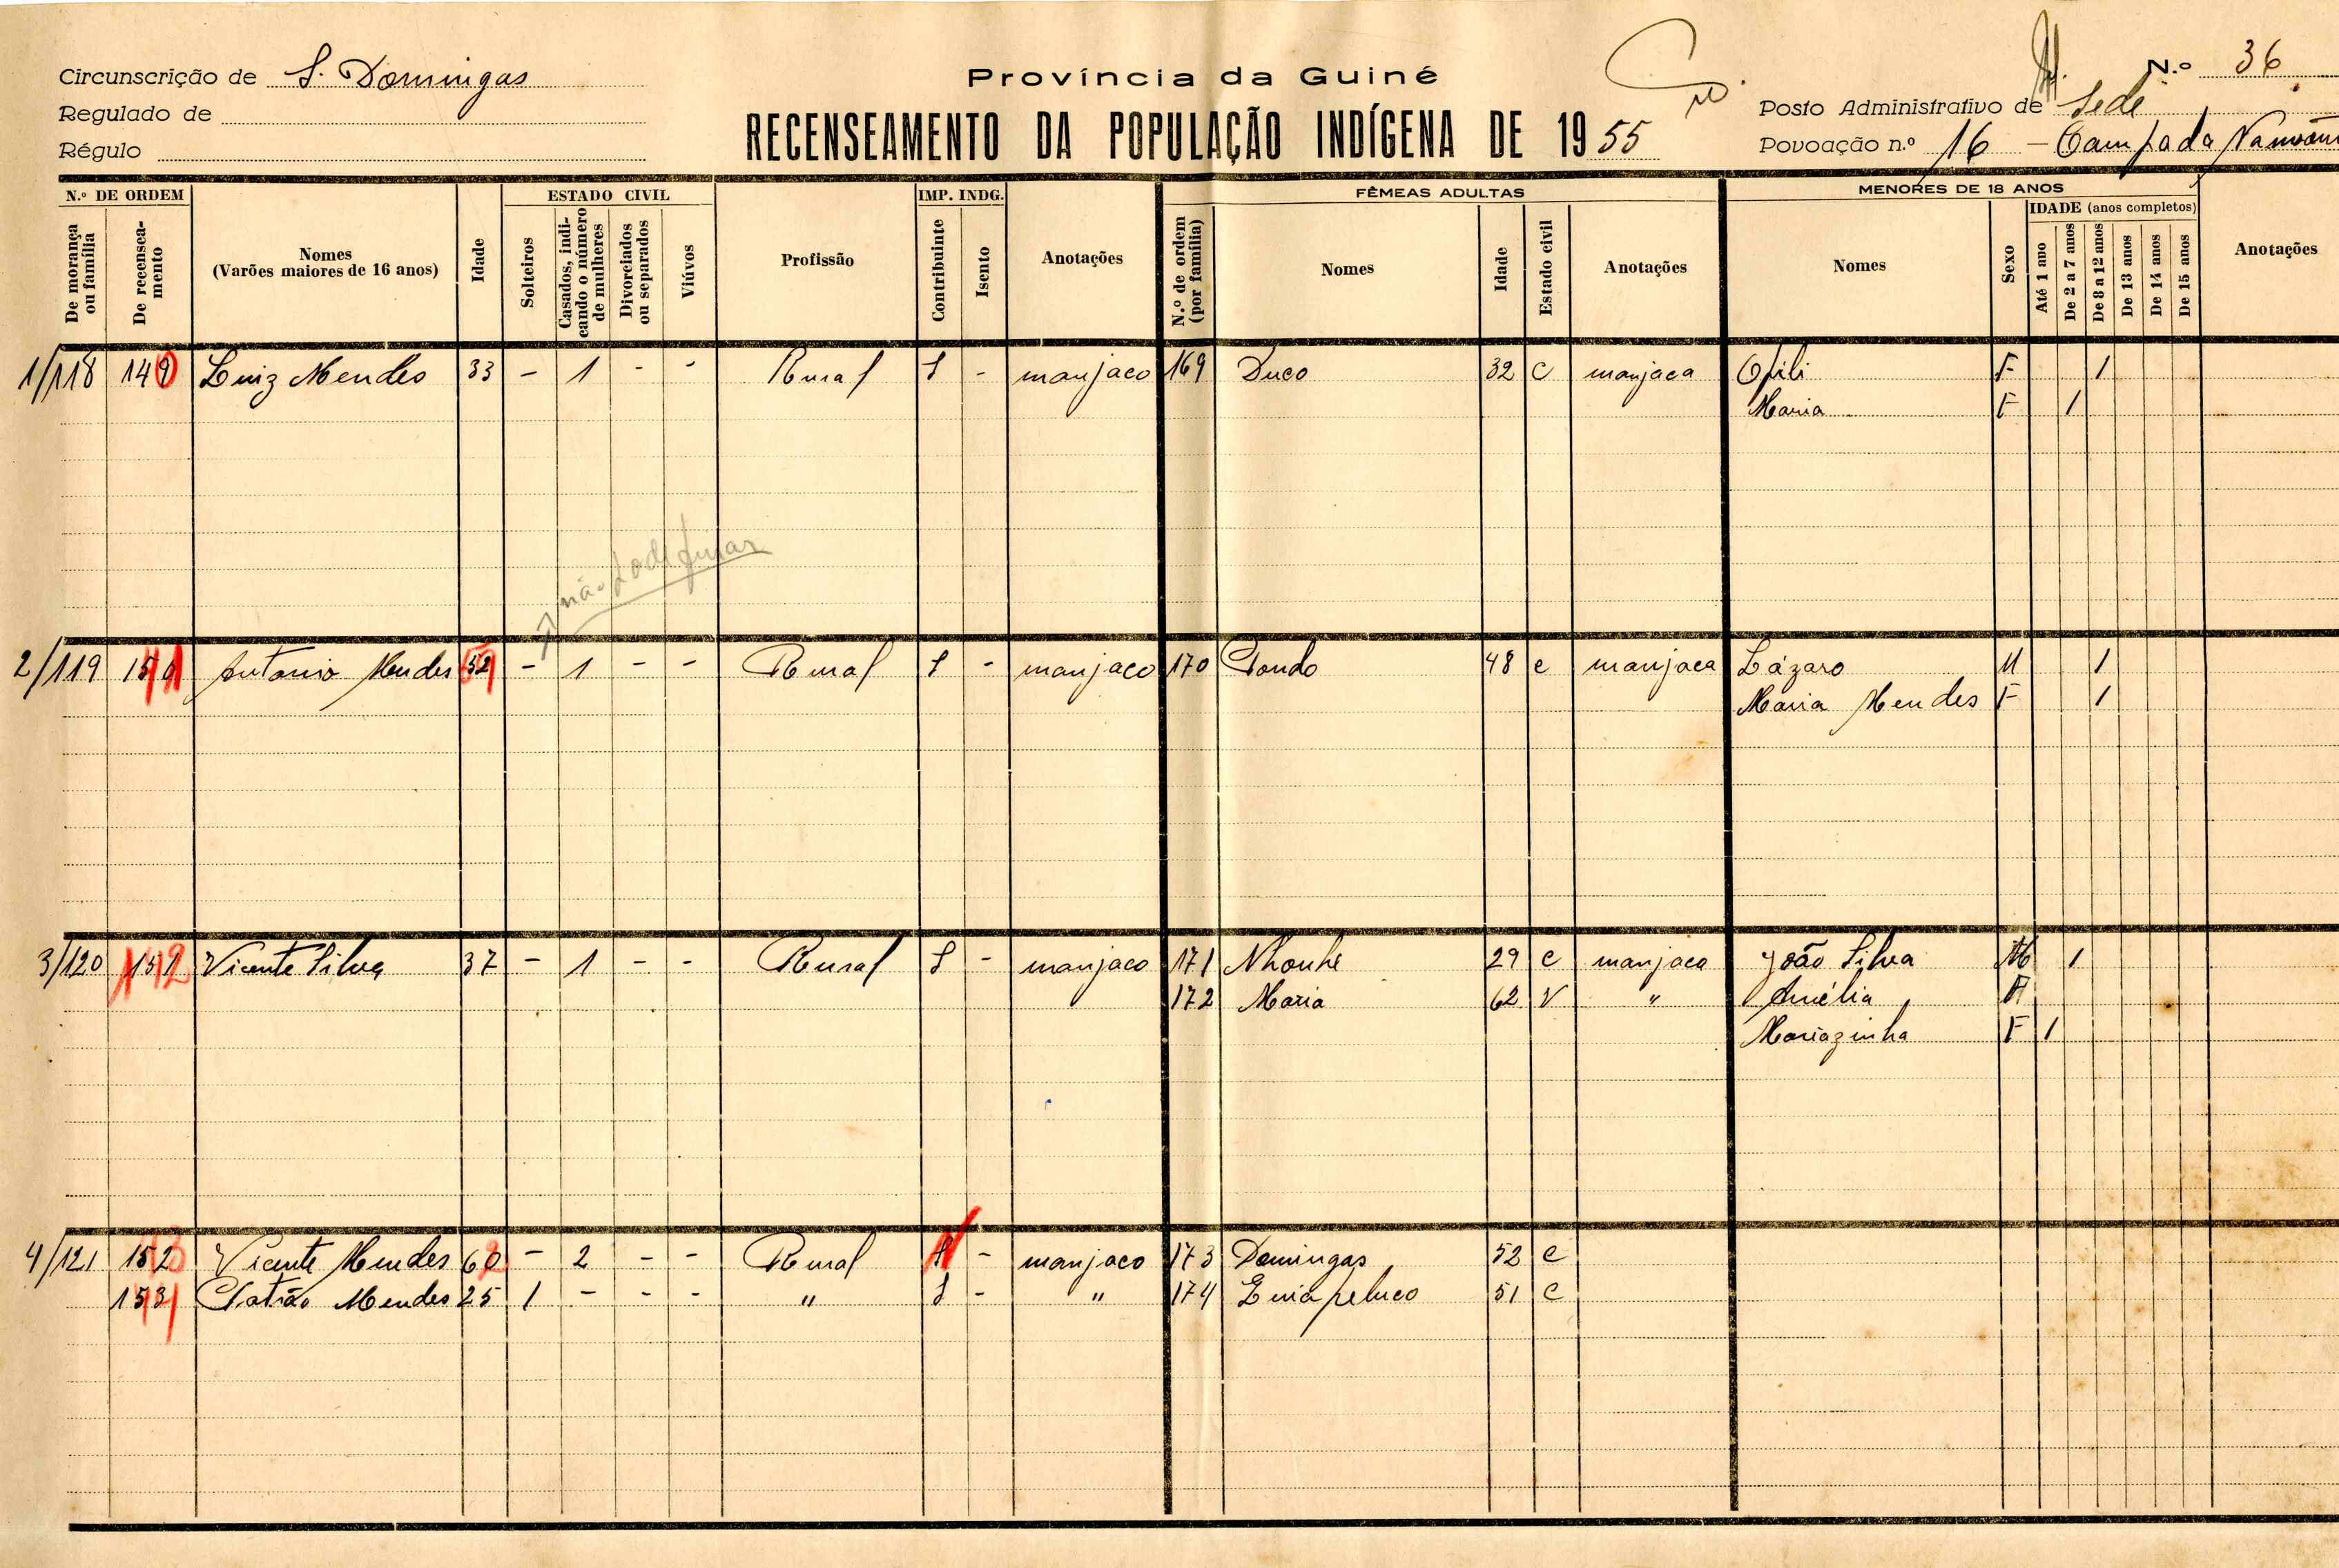 Circunscrição de S. Domingas
Regulado de
Régulo
Província da Guiné
RECENSEAMENTO DA POPULAÇÃO INDÍGENA DE 1955
N.º 36
Posto Administrativo de Sede
Povoação n.º 16 -
N.º DE ORDEM
De morança ou família
De recenseamento
Nomes
(Varões maiores de 16 anos)
Idade
ESTADO CIVIL
Solteiros
Casados, indicando o número de mulheres
Divorciados ou separados
Viúvos
Profissão
IMP. INDG.
Contribuinte
Isento
Anotações
FÊMEAS ADULTAS
N.º de ordem (por família)
Nomes
Idade
Estado civil
Anotações
MENORES DE 18 ANOS
Nomes
Sexo
IDADE (anos completos)
Até 1 ano
De 2 a 7 anos
De 8 a 12 anos
De 13 anos
De 14 anos
De 15 anos
Anotações
1/118 Luiz Mendes 33 - 1 - - Rural S - manjaco 169 Duco 32 C manjaca F 1
Maria F 1
não
2/119 Antonio Mendes - 1 - - Rural S - manjaco 170 48 c manjaca Lázaro M 1
Maria Mendes F 1
3/120 Vicente Silva 37 - 1 - - Rural S - manjaco 171 29 c manjaca João Silva M 1
172 Maria 62 V " Amélia
Mariazinha F 1
4/121 Vicente Mendes - 2 - - Rural - manjaco 173 Domingas 52 c
Mendes 25 1 - - - " S - " 174 51 c